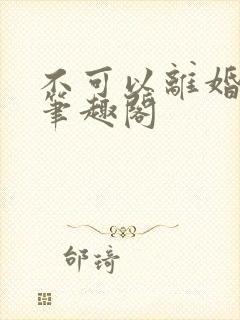 不可以離婚
筆趣閣
邰琦